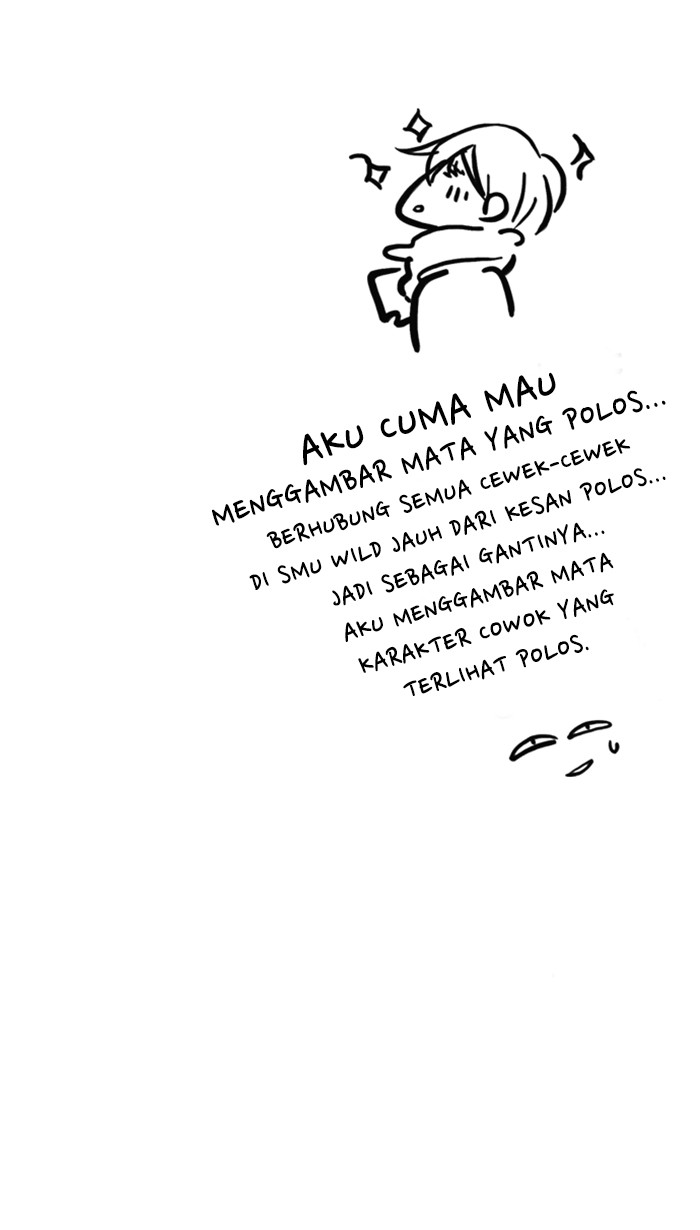 AKU CUMA MAU
MENGGAMBAR MATA YANG POLOS...
BERHUBUNG SEMUA CEWEK-CEWEK
DI SMU WILD JAUH DARI KESAN POLOS...
JADI SEBAGAI GANTINYA...
AKU MENGGAMBAR MATA
KARAKTER COWOK YANG
TERLIHAT POLOS.